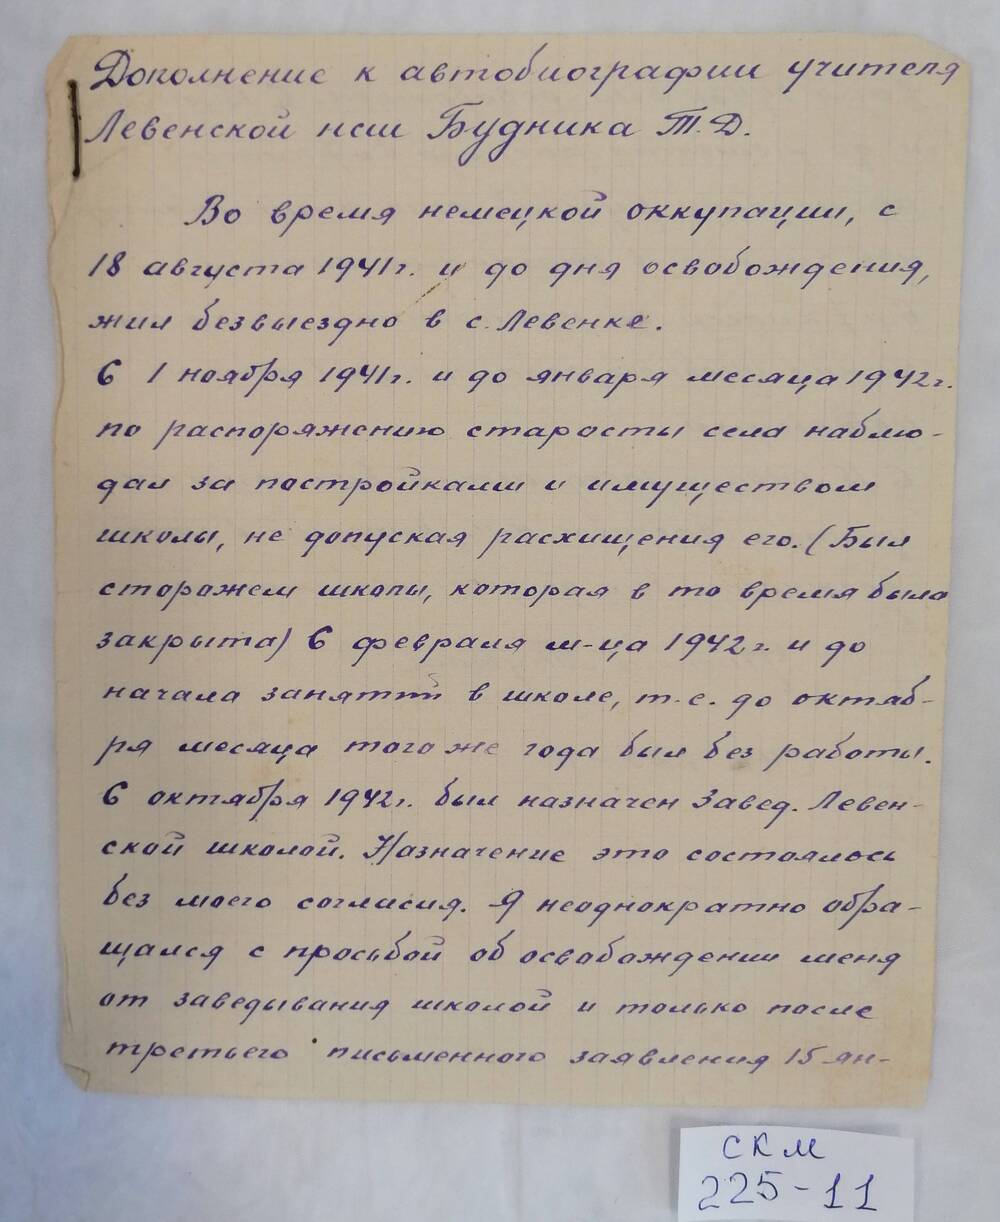 Дополнение к автобиографии учителя
Левенской нсш Будника Т.Д.
Во время немецкой оккупации, с
18 августа 1941г. и до дня освобождения,
жил безвыездно в с. Левенке.
С 1 ноября 1941г. и до января месяца 1942г.
по распоряжению старосты села наблю-
дал за постройками и имуществом
школы, не допуская расхищения его. (Был
сторожем школы, которая в то время была
закрыта) С февраля м-ца 1942г. и до
начала занятий в школе, т.е. до октяб-
ря месяца того же года был без работы.
С октября 1942г. был назначен Завед. Левен-
ской школой. Назначение это состоялось
без моего согласия. Я неоднократно обра-
щался с просьбой об освобождении меня
от заведывания школой и только после
третьего письменного заявления 15 ян-
СКМ
225-11